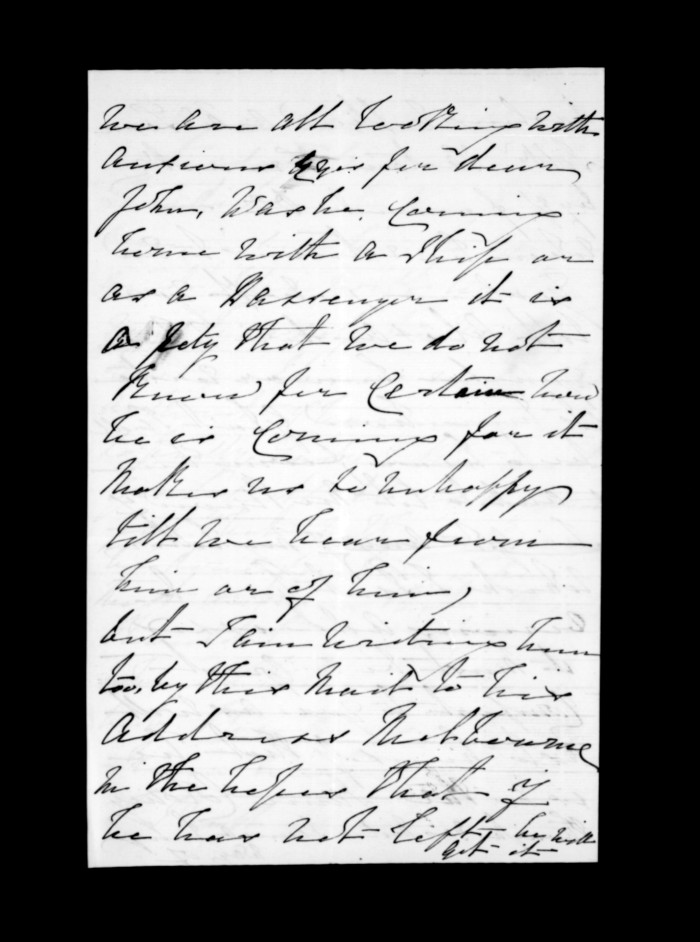 we are all looking with
anxious eyes for dear
John, Was he. Coming
home with a Ship or
as a Passenger it is
a pity that we do not
Know for Certain how
he is Coming for it
Makes us so unhappy
till we hear from
him or of him,
but I am writing him
too, by this Mail to his
Address Melbourne
in the hopes that if
he has not left he will
get it